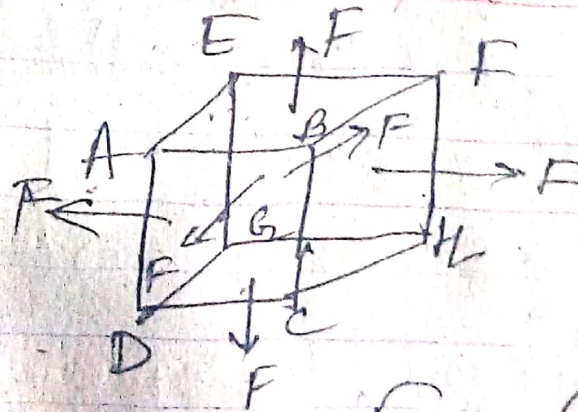 E F F
A B F
F F
F G H
D C
F